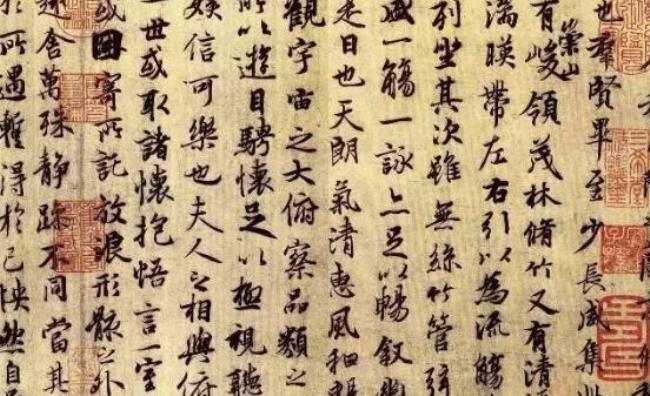 也羣賢畢至少長咸集此
有崇山峻領茂林脩竹又有清
湍暎帶左右引以為流觴
列坐其次雖無絲竹管弦
盛一觴一詠亦足以暢叙幽
是日也天朗氣清惠風和暢
觀宇宙之大俯察品類之
所以遊目騁懷足以極視聽
娛信可樂也夫人之相與俯
一世或取諸懷抱悟言一室
或因寄所託放浪形骸之外
趣舍萬殊靜躁不同當其
於所遇蹔得於己怏然自